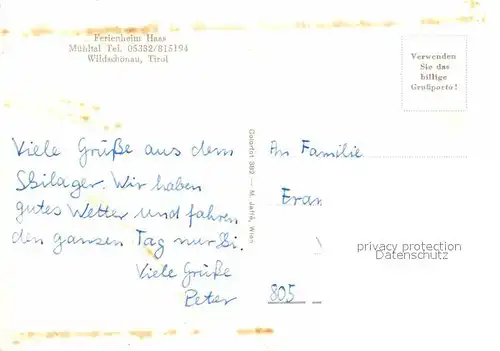 Ferienheim Haas
Mühltal Tel. 05332/815194
Wildschönau, Tirol
Verwenden
Sie das
billige
Grußporto!
Viele Grüße aus dem
Skilager. Wir haben
gutes Wetter und fahren
den ganzen Tag nur Ski.
Viele Grüße
Peter
Colorfot 982 — M. Jaffé, Wien
An Familie
Fran
805
privacy protection
Datenschutz